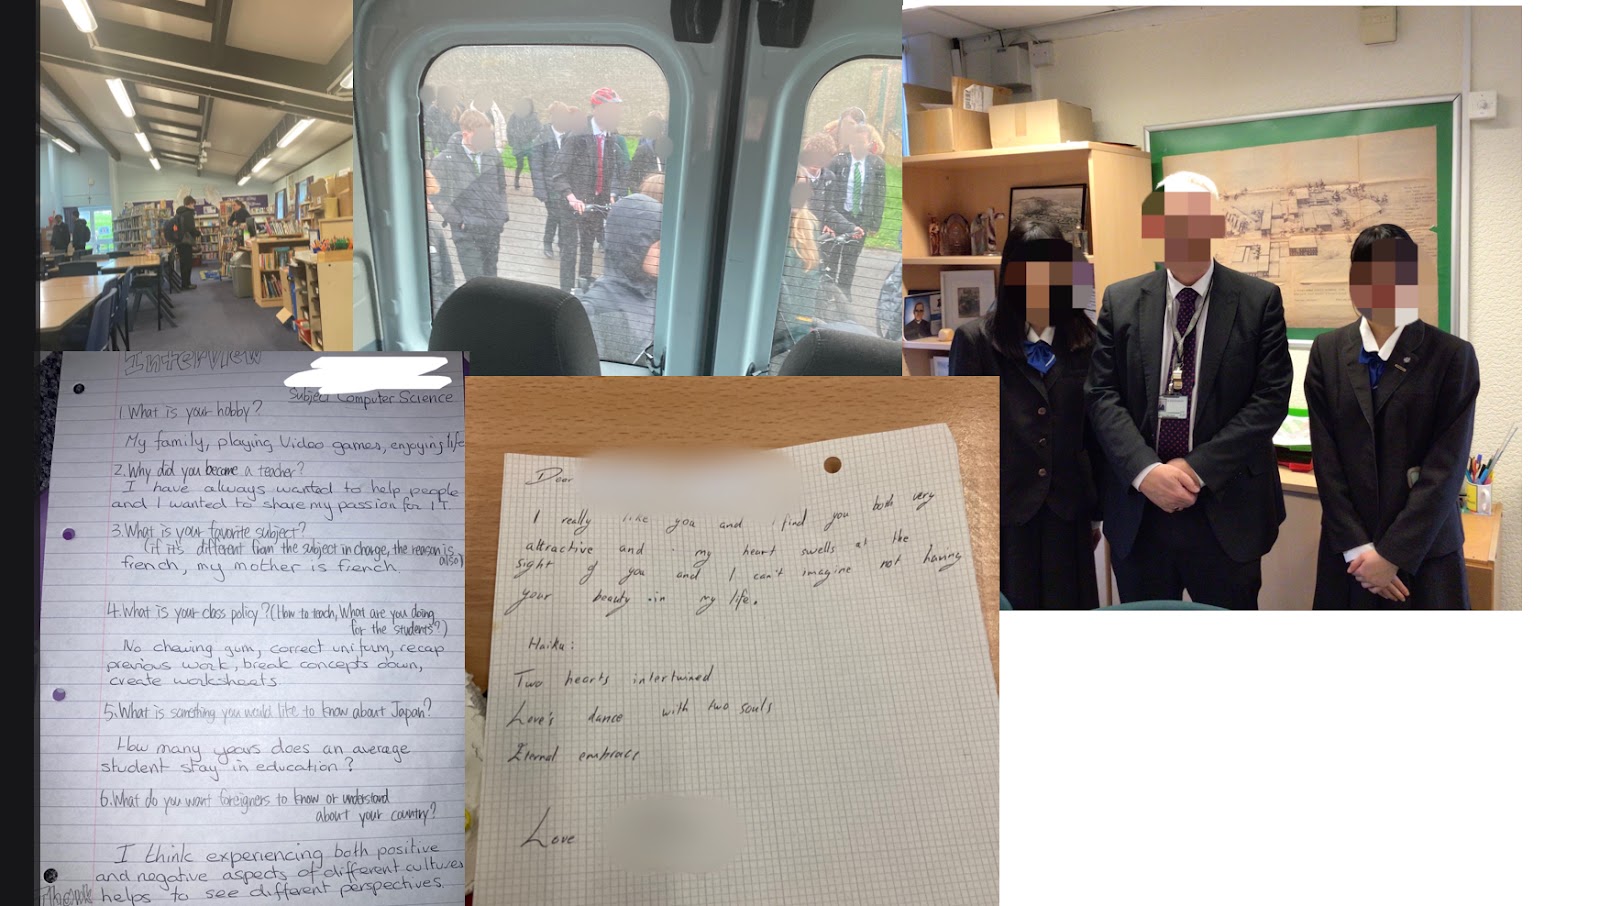 Interview
Subject Computer Science
1. What is your hobby?
My family, playing Video games, enjoying life
2. Why did you become a teacher?
I have always wanted to help people
and I wanted to share my passion for IT.
3. What is your favorite subject?
(if it's different from the subject in charge, the reason is
also)
french, my mother is french.
4. What is your class policy? (How to teach, What are you doing
for the students?)
No chewing gum, correct uniform, recap
previous work, break concepts down,
create worksheets
5. What is something you would like to know about Japan?
How many years does an average
student stay in education?
6. What do you want foreigners to know or understand
about your country?
I think experiencing both positive
and negative aspects of different cultures
helps to see different perspectives.
Dear
I really like you and I find you both very
attractive and my heart swells at the
sight of you and I can't imagine not having
your beauty in my life.
Haiku:
Two hearts intertwined
Love's dance with two souls
Eternal embrace
Love